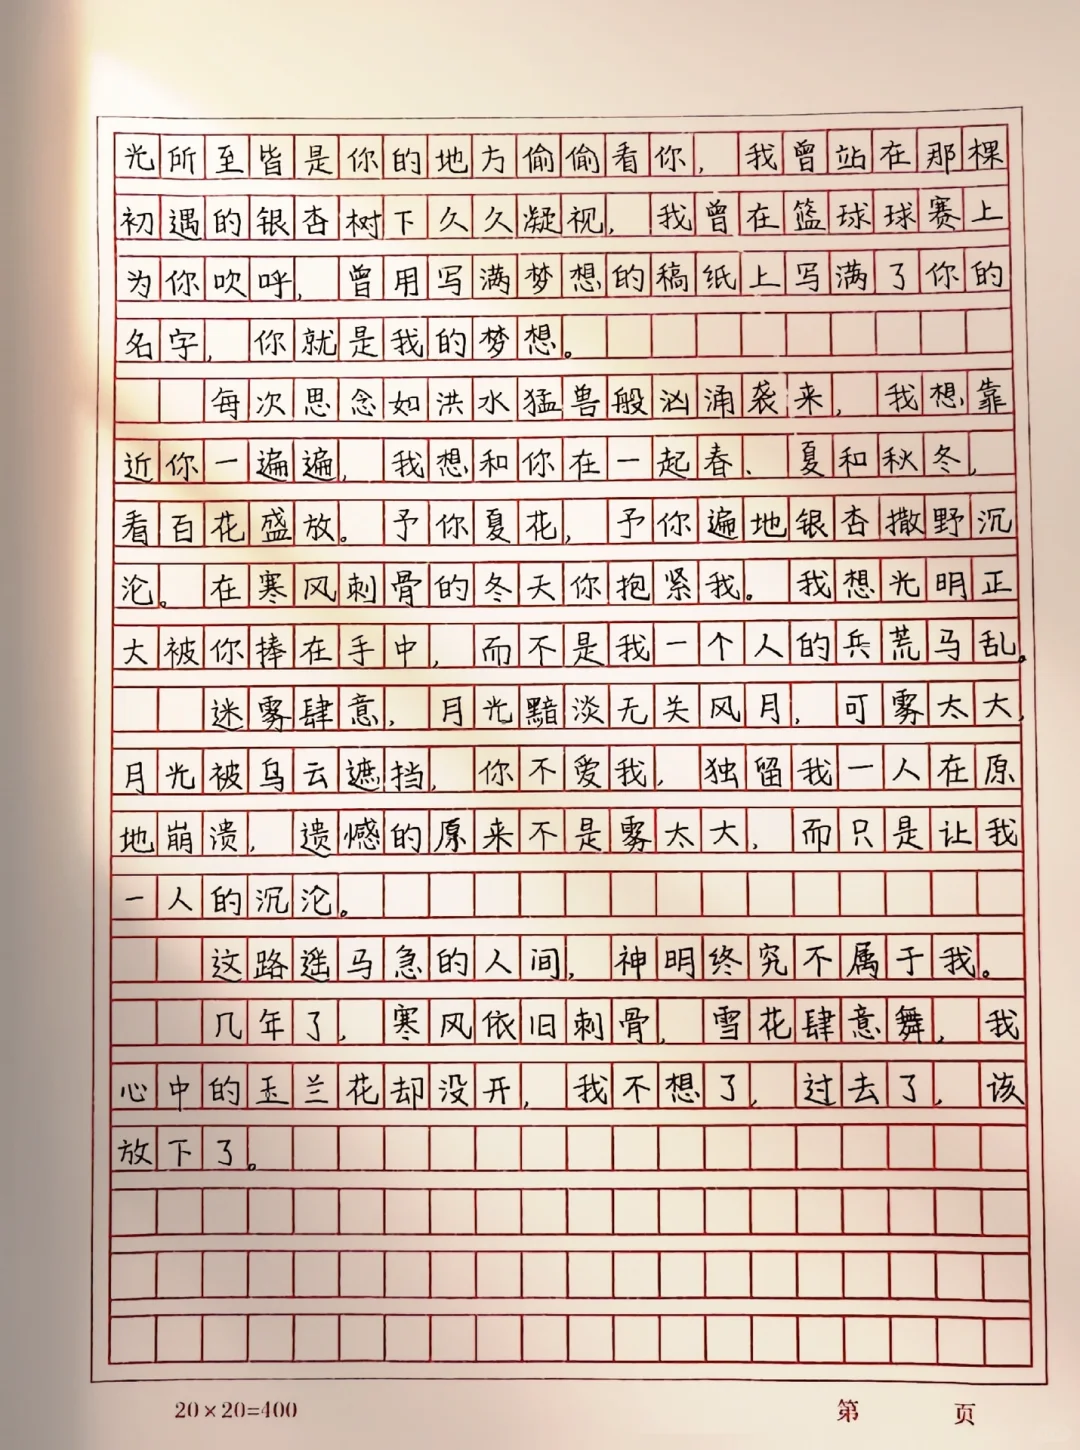 光所至皆是你的地方偷偷看你，我曾站在那棵
初遇的银杏树下久久凝视，我曾在篮球球赛上
为你吹呼，曾用写满梦想的稿纸上写满了你的
名字，你就是我的梦想。
每次思念如洪水猛兽般汹涌袭来，我想靠
近你一遍遍，我想和你在一起春、夏和秋冬，
看百花盛放。予你夏花，予你遍地银杏撒野沉
沦。在寒风刺骨的冬天你抱紧我。我想光明正
大被你捧在手中，而不是我一个人的兵荒马乱。
迷雾肆意，月光黯淡无关风月，可雾太大，
月光被鸟云遮挡，你不爱我，独留我一人在原
地崩溃，遗憾的原来不是雾太大，而只是让我
一人的沉沦。
这路遥马急的人间，神明终究不属于我。
几年了，寒风依旧刺骨，雪花肆意舞，我
心中的玉兰花却没开，我不想了，过去了，该
放下了。
20×20=400 第 页